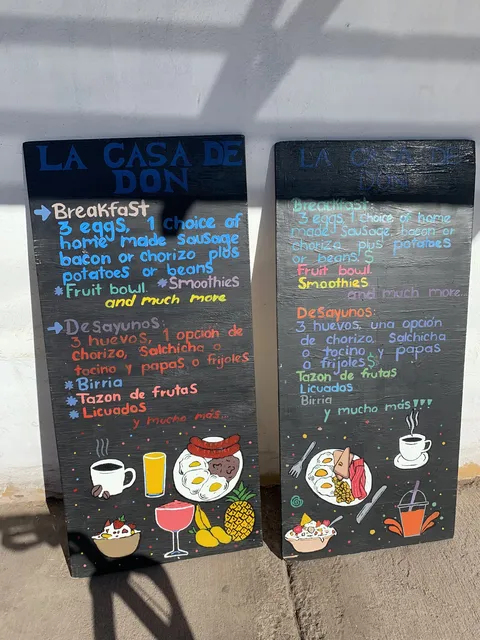 LA CASA DE
DON
Breakfast
3 eggs, 1 choice of
home made sausage
bacon or chorizo plus
potatoes or beans
*Fruit bowl. *Smoothies
and much more
Desayunos:
3 huevos, 1 opcion de
chorizo, salchicha o
tocino y papas o frijoles
*Birria
*Tazon de frutas
*Licuados
y mucho más...
LA CASA DE
DON
Breakfast:
3 eggs, 1 choice of home
made sausage, bacon or
chorizo, plus potatoes
or beans.$
Fruit bowl.
Smoothies
and much more...
Desayunos:
3 huevos, una opción
de chorizo, salchicha
o tocino y papas
o frijoles$
Tazon de frutas
Licuados
Birria
y mucho más!!!